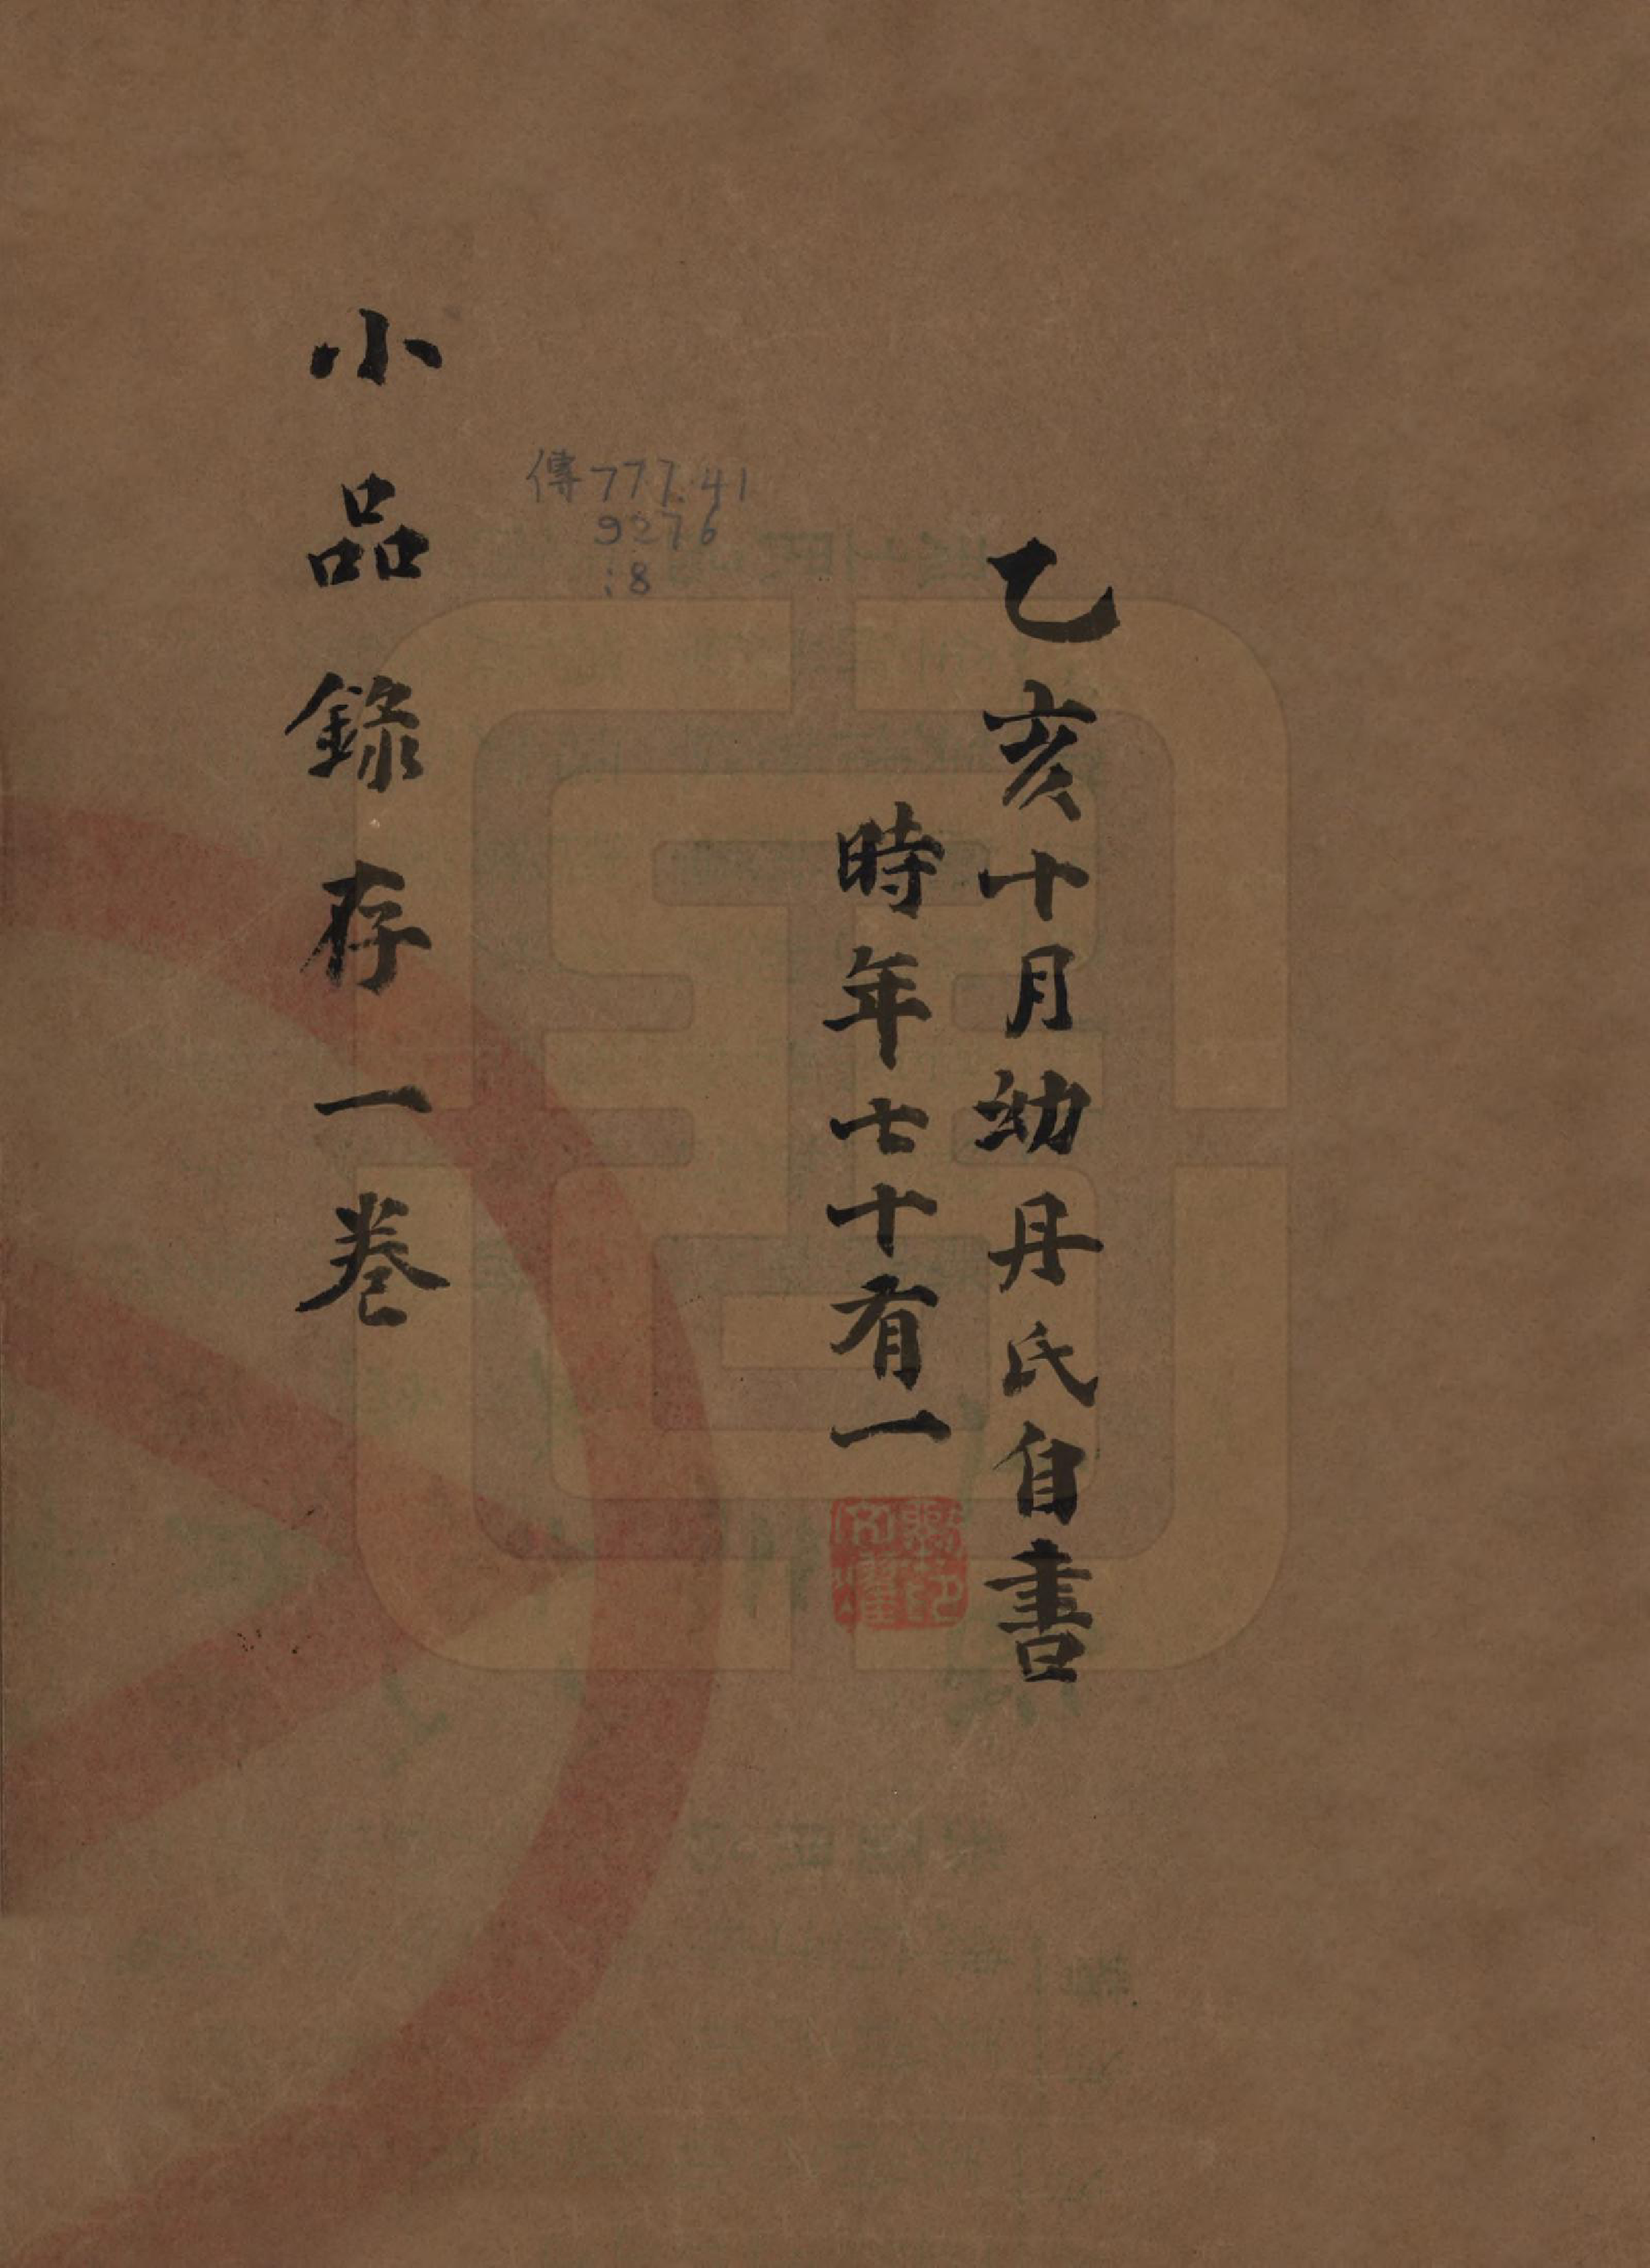 乙亥十月幼丹氏自書
時年七十有一
傳777.41
9276
:8
小品錄存一卷